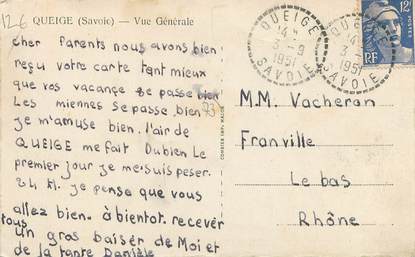 126 QUEIGE (Savoie) – Vue Générale
cher Parents nous avons bien
reçu votre carte tant mieux
que vos vacance se passe bien
Les miennes se passe bien 73
je m'amuse bien. l'air de
QUEIGE me fait Du bien Le
premier jour je me suis peser.
24 Kl. je pense que vous
allez bien. à bientot. recever
tous
un gros baiser de Moi et
de la tante Danièle
QUEIGE
14 H
3 - 9
1951
SAVOIE
QUEIGE
14
3
1951
SAVOIE
12F
RF
M.M. Vacheran
Franville
Le bas
Rhône